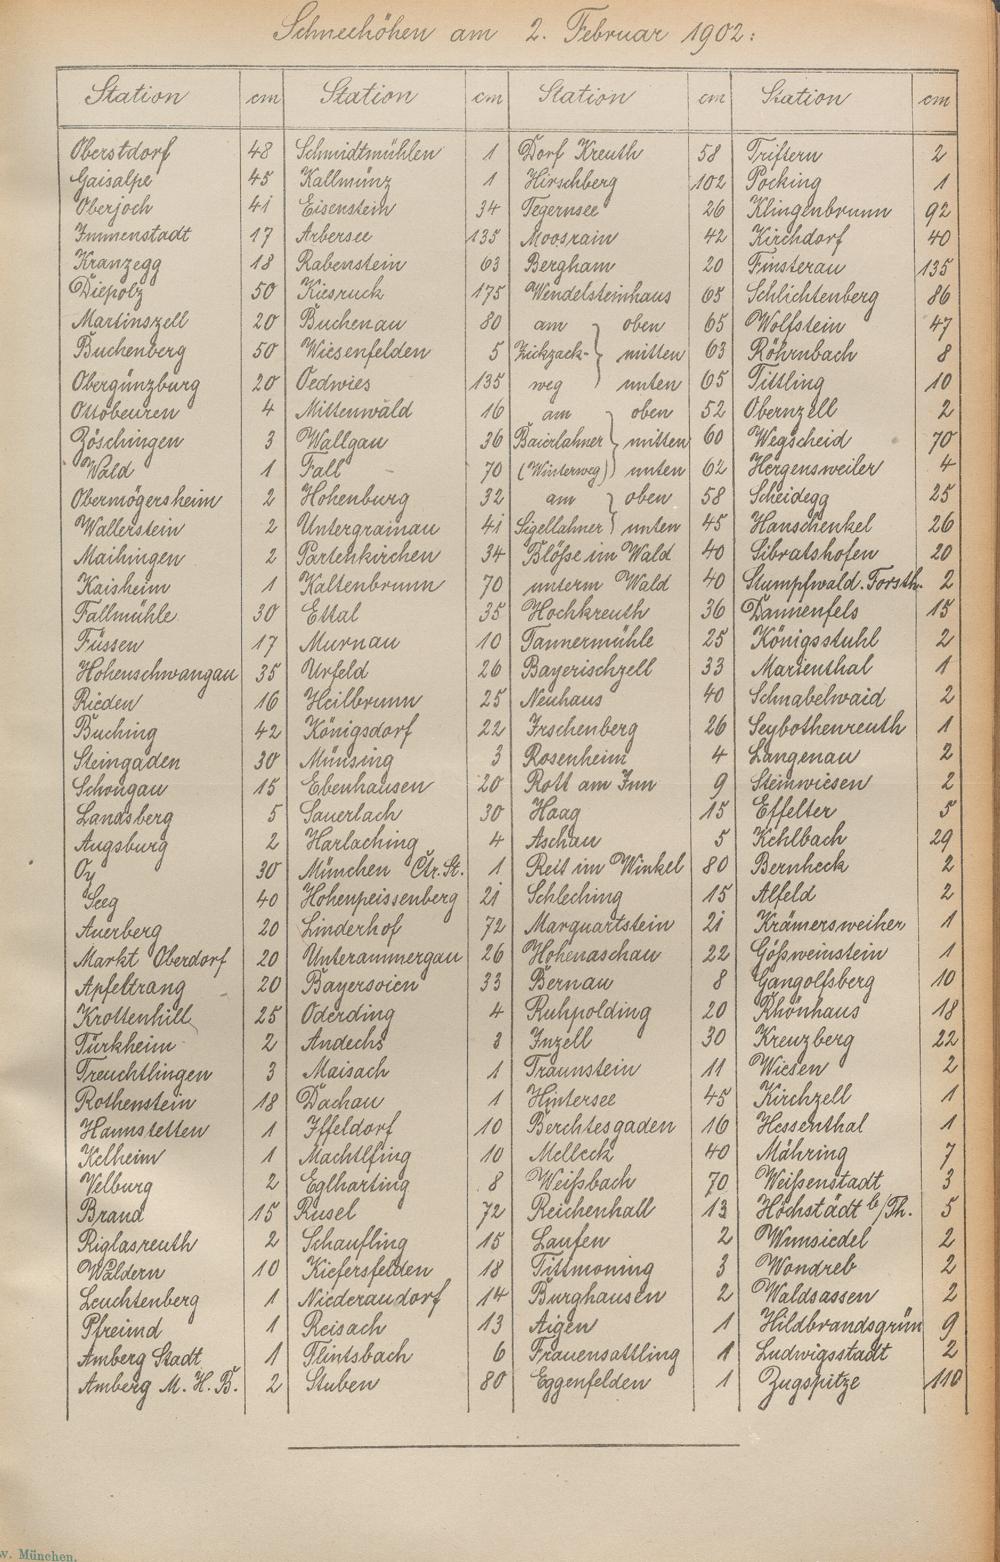 Schneehöhen am 2. Februar 1902:
Station cm Station cm Station cm Station cm
Oberstdorf 48 Schmidtmühlen 1 Dorf Kreuth 58 Triftern 2
Gaisalpe 45 Kallmünz 1 Hirschberg 102 Pocking 1
Oberjoch 41 Eisenstein 34 Tegernsee 26 Klingenbrunn 92
Immenstadt 17 Arbersee 135 Moosrain 42 Kirchdorf 40
Kranzegg 18 Rabenstein 63 Bergham 20 Finsterau 135
Diepolz 50 Kiesruck 175 Wendelsteinhaus 65 Schlichtenberg 86
Martinszell 20 Buchenau 80 am oben 65 Wolfstein 47
Buchenberg 50 Wiesenfelden 5 Zickzack- mitten 63 Röhrnbach 8
Obergünzburg 20 Oedwies 135 weg unten 65 Tittling 10
Ottobeuren 4 Mittenwald 16 am oben 52 Obernzell 2
Zöschingen 3 Wallgau 36 Baierlahner mitten 60 Wegscheid 70
Wald 1 Fall 70 (Winterweg) unten 62 Hergensweiler 4
Obermögersheim 2 Hohenburg 32 am oben 58 Scheidegg 25
Wallerstein 2 Untergrainau 41 Sigellahner unten 45 Hanschenkel 26
Maihingen 2 Partenkirchen 34 Blöße im Wald 40 Sibratshofen 20
Kaisheim 1 Kaltenbrunn 70 unterm Wald 40 Stumpfwald. Forsth. 2
Fallmühle 30 Ettal 35 Hochkreuth 36 Dannenfels 15
Füssen 17 Murnau 10 Tannermühle 25 Königsstuhl 2
Hohenschwangau 35 Urfeld 26 Bayerischzell 33 Marienthal 1
Rieden 16 Heilbrunn 25 Neuhaus 40 Schnabelwaid 2
Buching 42 Königsdorf 22 Irschenberg 26 Seybothenreuth 1
Steingaden 30 Münsing 3 Rosenheim 4 Langenau 2
Schongau 15 Ebenhausen 20 Rott am Inn 9 Steinwiesen 2
Landsberg 5 Sauerlach 30 Haag 15 Effelter 5
Augsburg 2 Harlaching 4 Aschau 5 Kehlbach 29
Oy 30 München Ctr. St. 1 Reit im Winkel 80 Bernheck 2
Seeg 40 Hohenpeissenberg 21 Schleching 15 Alfeld 2
Auerberg 20 Linderhof 72 Marquartstein 21 Krämersweiher 1
Markt Oberdorf 20 Unterammergau 26 Hohenaschau 22 Gößweinstein 1
Apfeltrang 20 Bayersoien 33 Bernau 8 Gangolfsberg 10
Krottenhill 25 Oderding 4 Ruhpolding 20 Rhönhaus 18
Türkheim 2 Andechs 3 Inzell 30 Kreuzberg 22
Treuchtlingen 3 Maisach 1 Traunstein 11 Wiesen 2
Rothenstein 18 Dachau 1 Hintersee 45 Kirchzell 1
Haunstetten 1 Iffeldorf 10 Berchtesgaden 16 Hessenthal 1
Kelheim 1 Machtlfing 10 Melleck 40 Mähring 7
Velburg 2 Eglharting 8 Weißbach 70 Weißenstadt 3
Brand 15 Rusel 72 Reichenhall 13 Höchstädt b/Th. 5
Riglasreuth 2 Schaufling 15 Laufen 2 Wunsiedel 2
Waldern 10 Kiefersfelden 18 Tittmoning 3 Wondreb 2
Leuchtenberg 1 Niederaudorf 14 Burghausen 2 Waldsassen 2
Pfreimd 1 Reisach 13 Aigen 1 Hildbrandsgrün 9
Amberg Stadt 1 Flintsbach 6 Frauensattling 1 Ludwigsstadt 2
Amberg M. H. B. 2 Stuben 80 Eggenfelden 1 Zugspitze 110
w. München.